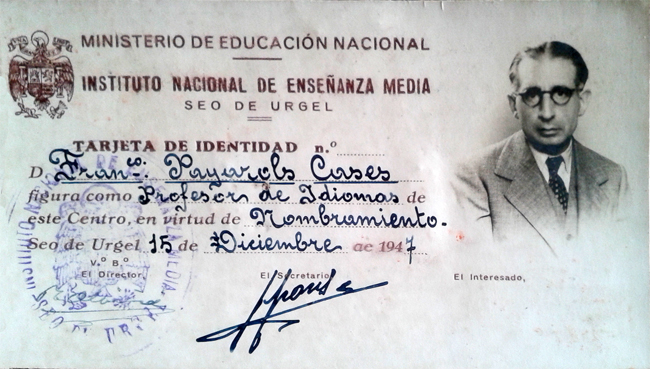 MINISTERIO DE EDUCACIÓN NACIONAL
INSTITUTO NACIONAL DE ENSEÑANZA MEDIA
SEO DE URGEL
TARJETA DE IDENTIDAD n.º
D. Franº. Payarols Casas
figura como Profesor de Idiomas de
este Centro, en virtud de Nombramiento.
Seo de Urgel 15 de Diciembre de 1947
V.º B.º
El Director, El Secretario El Interesado,